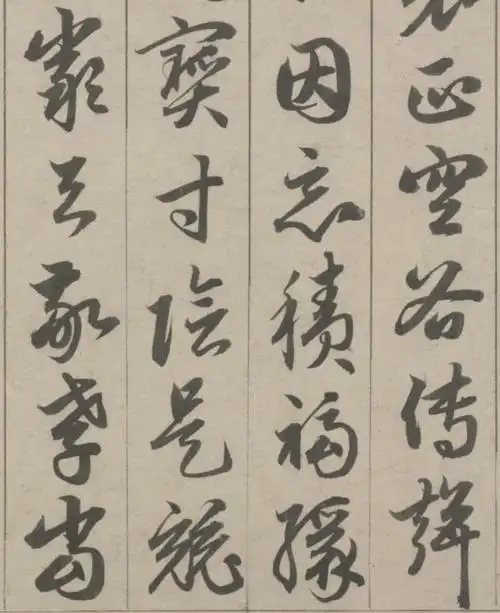 正空谷傳聲
因惡積福緣
寶寸陰是競
嚴與敬孝當